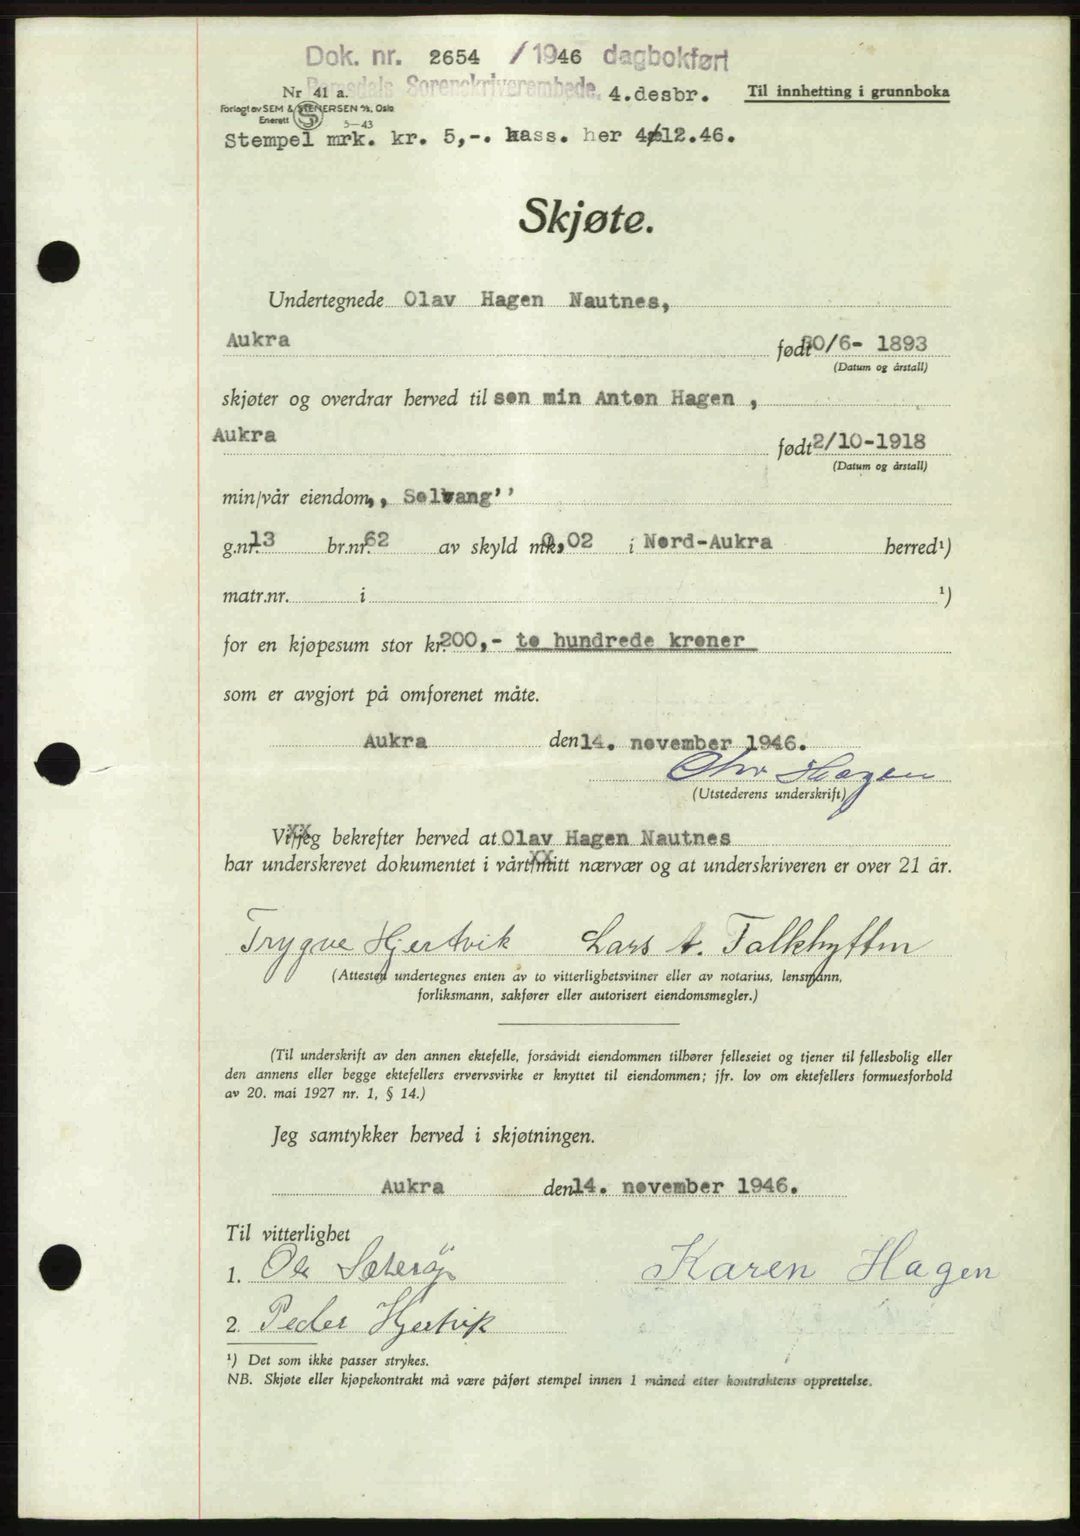 Dok. nr. 2654 /1946 dagbokført
Romsdals Sorenskriverembede, 4.desbr.
Nr 41 a.
Til innhefting i grunnboka
Forlagt av SEM & STENERSEN A/S, Oslo
Enerett 5-43
Stempel mrk. kr. 5,-. kass. her 4/12.46.
Skjøte.
Undertegnede Olav Hagen Nautnes,
Aukra født 30/6- 1893
(Datum og årstall)
skjøter og overdrar herved til søn min Anton Hagen ,
Aukra født 2/10-1918
(Datum og årstall)
min/vår eiendom ,, Solvang''
g.nr. 13 br.nr. 62 av skyld mk. 0,02 i Nord-Aukra herred¹)
matr.nr. i ¹)
for en kjøpesum stor kr. 200,- to hundrede kroner
som er avgjort på omforenet måte.
Aukra den 14. november 1946.
Olav Hagen
(Utstederens underskrift)
Vi/jeg bekrefter herved at Olav Hagen Nautnes
har underskrevet dokumentet i vårt/mitt nærvær og at underskriveren er over 21 år.
Trygve Hjertvik Lars A. Falkhytten
(Attesten undertegnes enten av to vitterlighetsvitner eller av notarius, lensmann,
forliksmann, sakfører eller autorisert eiendomsmegler.)
(Til underskrift av den annen ektefelle, forsåvidt eiendommen tilhører felleseiet og tjener til fellesbolig eller
den annens eller begge ektefellers ervervsvirke er knyttet til eiendommen; jfr. lov om ektefellers formuesforhold
av 20. mai 1927 nr. 1, § 14.)
Jeg samtykker herved i skjøtningen.
Aukra den 14. november 1946.
Til vitterlighet
1. Ole Sæterøy Karen Hagen
2. Peder Hjertvik
¹) Det som ikke passer strykes.
NB. Skjøte eller kjøpekontrakt må være påført stempel innen 1 måned etter kontraktens opprettelse.